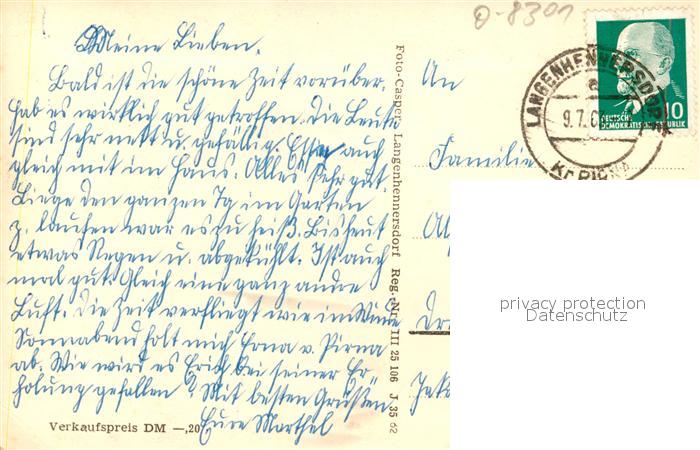 Meine Lieben.
Bald ist die schöne Zeit vorüber.
Hab es wirklich gut getroffen. Die Leute
sind sehr nett u. gefällig. Essen auch
gleich mit im Haus. Alles sehr gut.
Liege den ganzen Tg im Garten
z. laufen war es zu heiß. Bis heut
etwas Regen u. abgekühlt. Ist auch
mal gut. Gleich eine ganz andre
Luft. Die Zeit verfliegt wie im Winde
Sonnabend holt mich Erna v. Pirna
ab. Wie wird es Erich bei seiner Er-
holung gefallen? Mit besten Grüßen
Eure Marthel
Verkaufspreis DM —,20
Foto-Casper, Langenhennersdorf Reg.-Nr. III 25 106 J 35 62
O-8301
LANGENHENNERSDORF
a
9.7.6
Kr PIRNA
10
DEUTSCHE
DEMOKRATISCHE REPUBLIK
An
Familie
Dre
privacy protection
Datenschutz